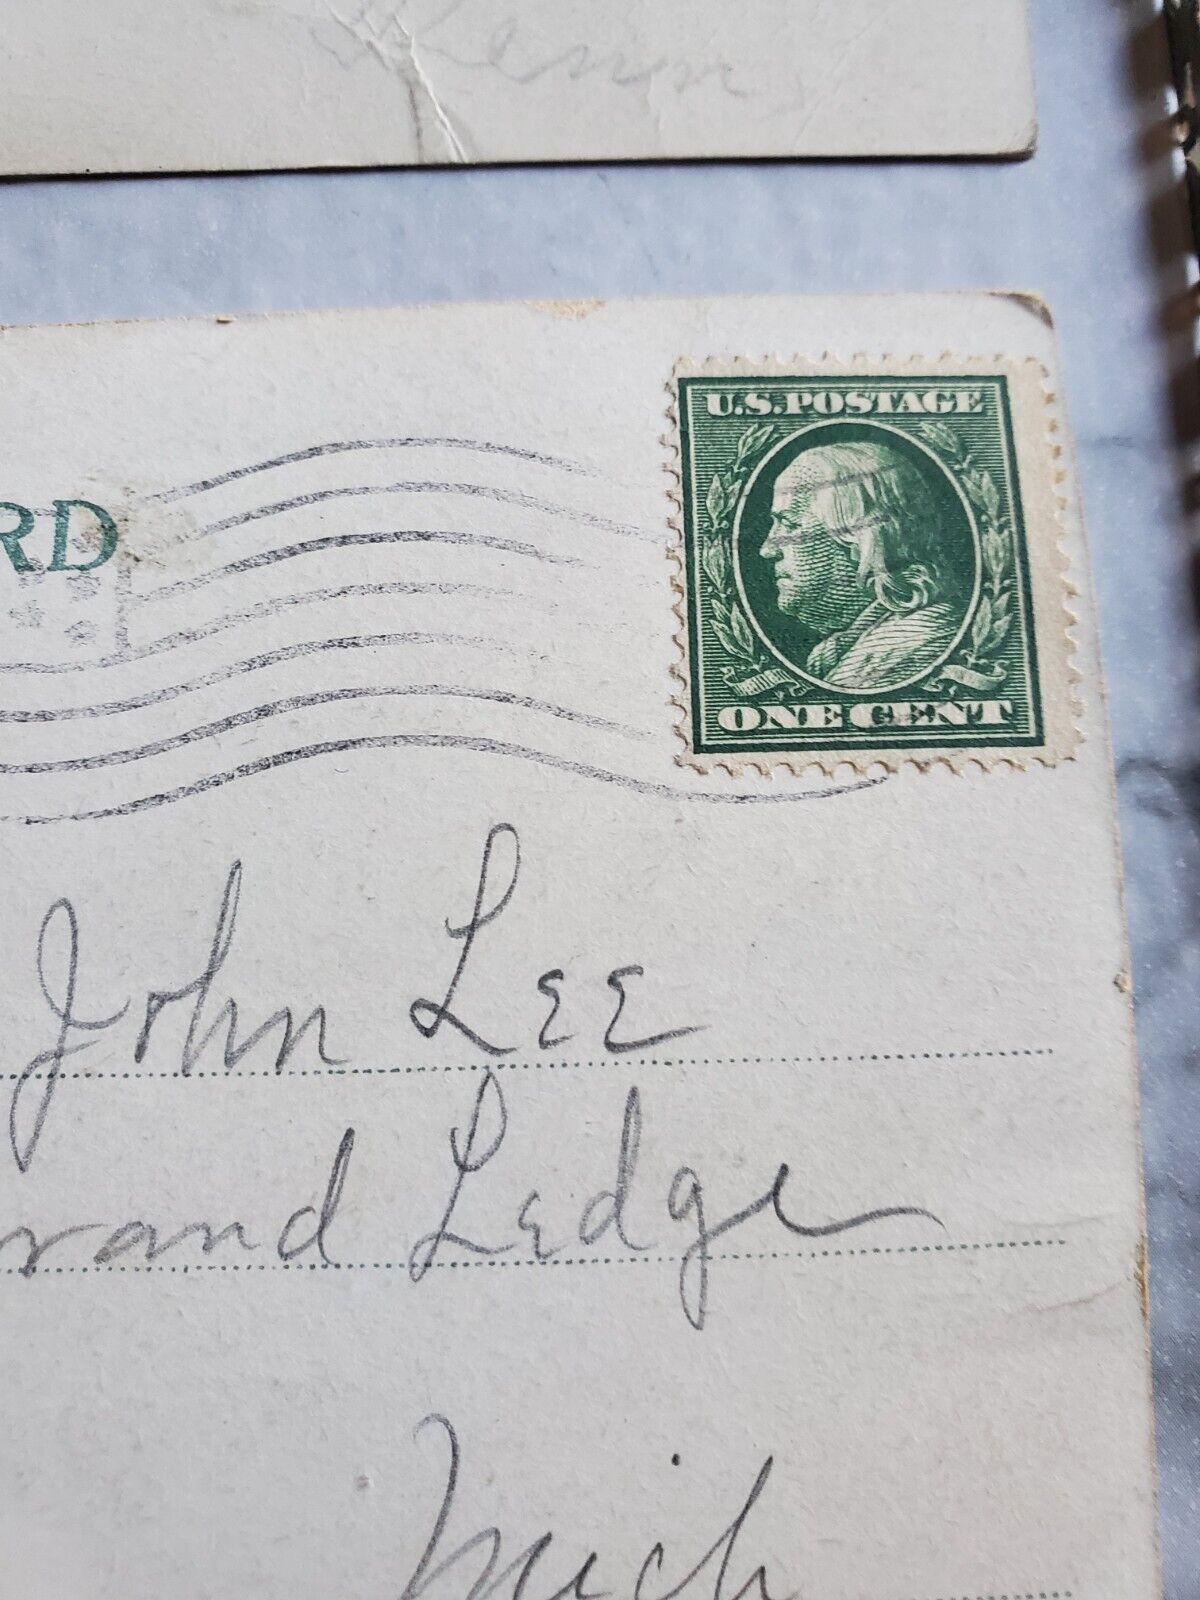 U.S. POSTAGE
RD
ONE CENT
John Lee
rand Ledge
Mich